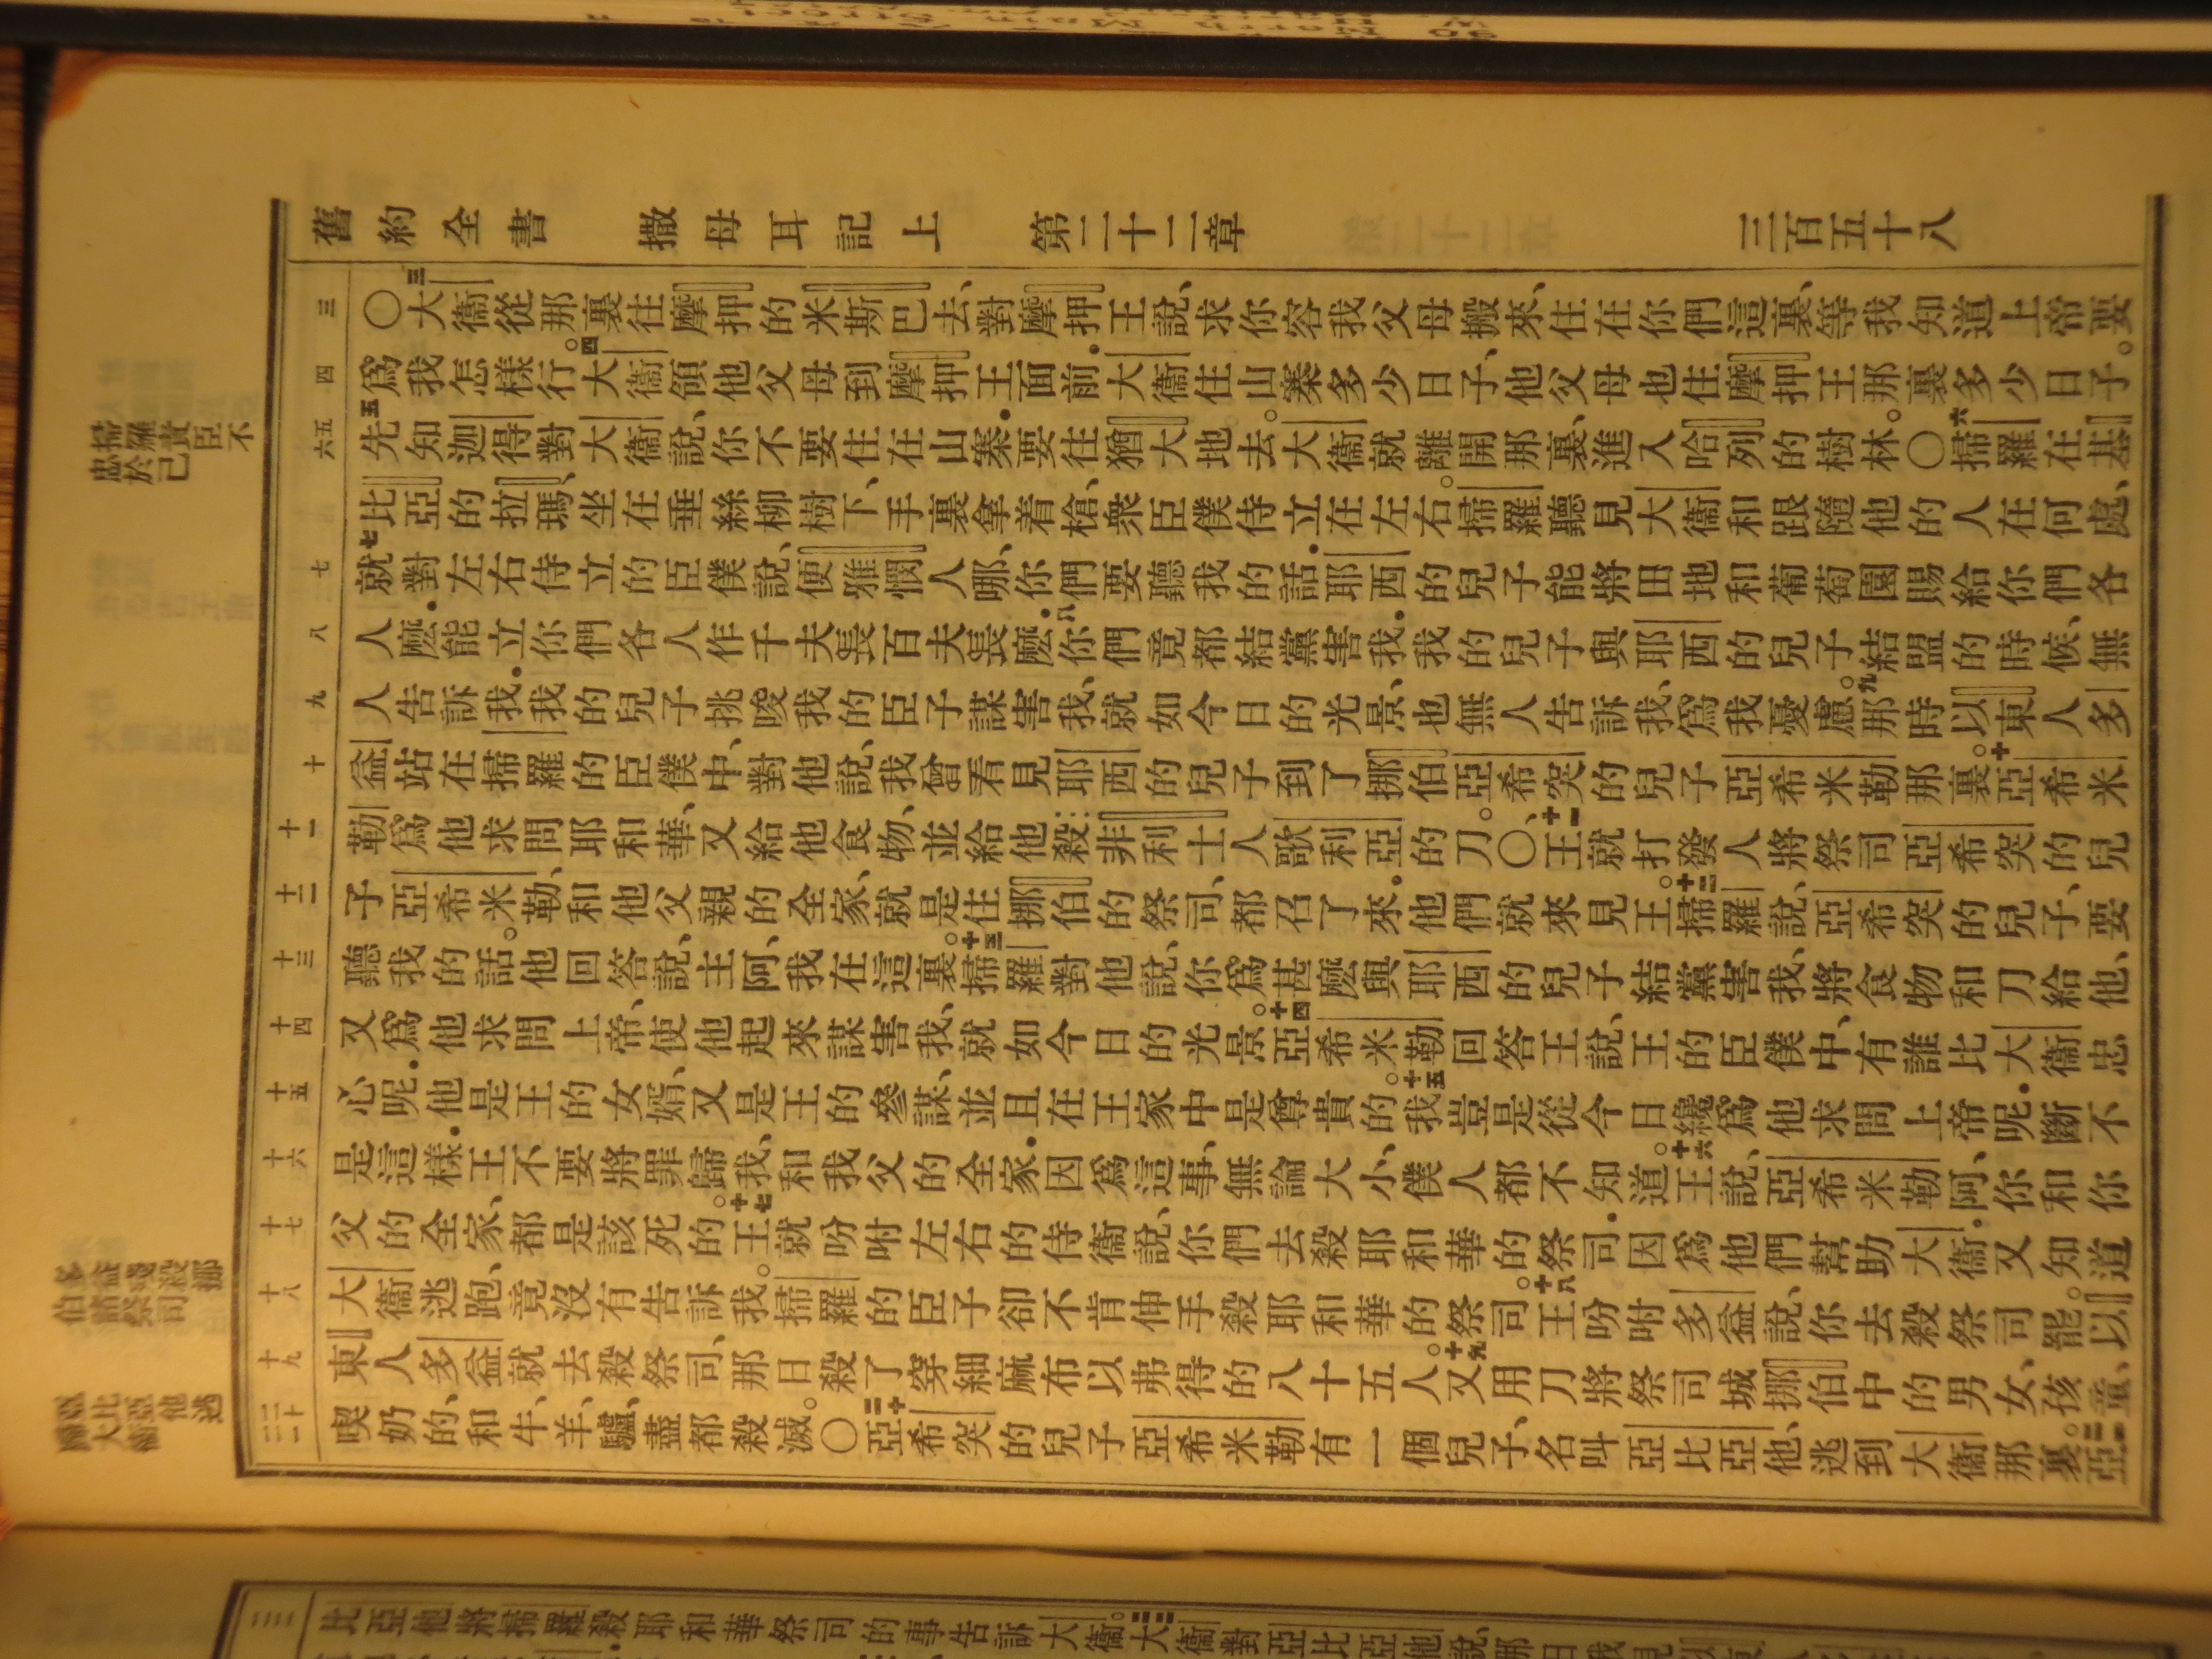 舊約全書 撒母耳記上 第二十二章 三百五十八
三〇大衞從那裏往摩押的米斯巴去、對摩押王說、求你容我父母搬來、住在你們這裏、等我知道上帝要
爲我怎樣行。四大衞領他父母到摩押王面前．大衞住山寨多少日子、他父母也住摩押王那裏多少日子。
五先知迦得對大衞說、你不要住在山寨．要往猶大地去。大衞就離開那裏、進入哈列的樹林。〇六掃羅在基
比亞的拉瑪、坐在垂絲柳樹下、手裏拿着槍、衆臣僕侍立在左右。掃羅聽見大衞和跟隨他的人在何處、
七就對左右侍立的臣僕說、便雅憫人哪、你們要聽我的話．耶西的兒子能將田地和葡萄園賜給你們各
人麽．能立你們各人作千夫長百夫長麽．八你們竟都結黨害我．我的兒子與耶西的兒子結盟的時候、無
人告訴我．我的兒子挑唆我的臣子謀害我、就如今日的光景、也無人告訴我、爲我憂慮。九那時以東人多
益站在掃羅的臣僕中、對他說、我曾看見耶西的兒子到了挪伯、亞希突的兒子亞希米勒那裏。十亞希米
勒爲他求問耶和華、又給他食物、並給他殺非利士人歌利亞的刀。〇十一王就打發人將祭司亞希突的兒
子亞希米勒、和他父親的全家、就是住挪伯的祭司、都召了來．他們就來見王。十二掃羅說、亞希突的兒子、要
聽我的話。他回答說、主阿、我在這裏。十三掃羅對他說、你爲甚麽與耶西的兒子結黨害我、將食物和刀給他、
又爲他求問上帝、使他起來謀害我、就如今日的光景。十四亞希米勒回答王說、王的臣僕中、有誰比大衞忠
心呢．他是王的女婿、又是王的參謀、並且在王家中是尊貴的。十五我豈是從今日纔爲他求問上帝呢．斷不
是這樣．王不要將罪歸我、和我父的全家．因爲這事、無論大小、僕人都不知道。十六王說、亞希米勒阿、你和你
父的全家、都是該死的。十七王就吩咐左右的侍衞說、你們去殺耶和華的祭司．因爲他們幫助大衞．又知道
大衞逃跑、竟沒有告訴我。掃羅的臣子卻不肯伸手殺耶和華的祭司。十八王吩咐多益說、你去殺祭司罷。以
東人多益就去殺祭司、那日殺了穿細麻布以弗得的八十五人。十九又用刀將祭司城挪伯中的男女、孩童、
喫奶的、和牛、羊、驢、盡都殺滅。〇二十亞希突的兒子亞希米勒有一個兒子、名叫亞比亞他、逃到大衞那裏。二一亞
掃羅責臣不忠於己
多益殘殺挪伯諸祭司
亞比亞他逃歸大衞
比亞他將掃羅殺耶和華祭司的事告訴大衞。大衞對亞比亞他說、那日我見以東